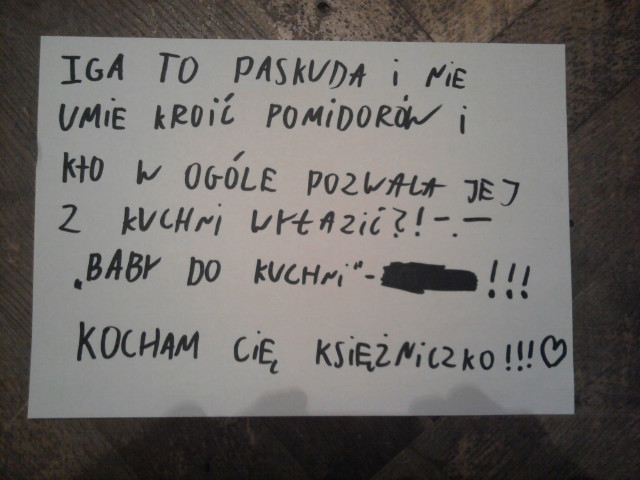 IGA TO PASKUDA i NiE
UMiE KROiĆ POMiDORÓW i
KtO W OGÓLE POZWALA JEJ
Z KUCHNi WYŁAZiĆ?! -.-
„BABY DO KUCHNi" - !!!
KOCHAM CiĘ KSiĘŻNiCZKO!!!♡